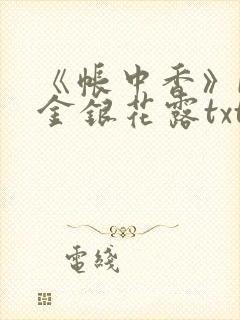 《帐中香》
金银花露txt
电线